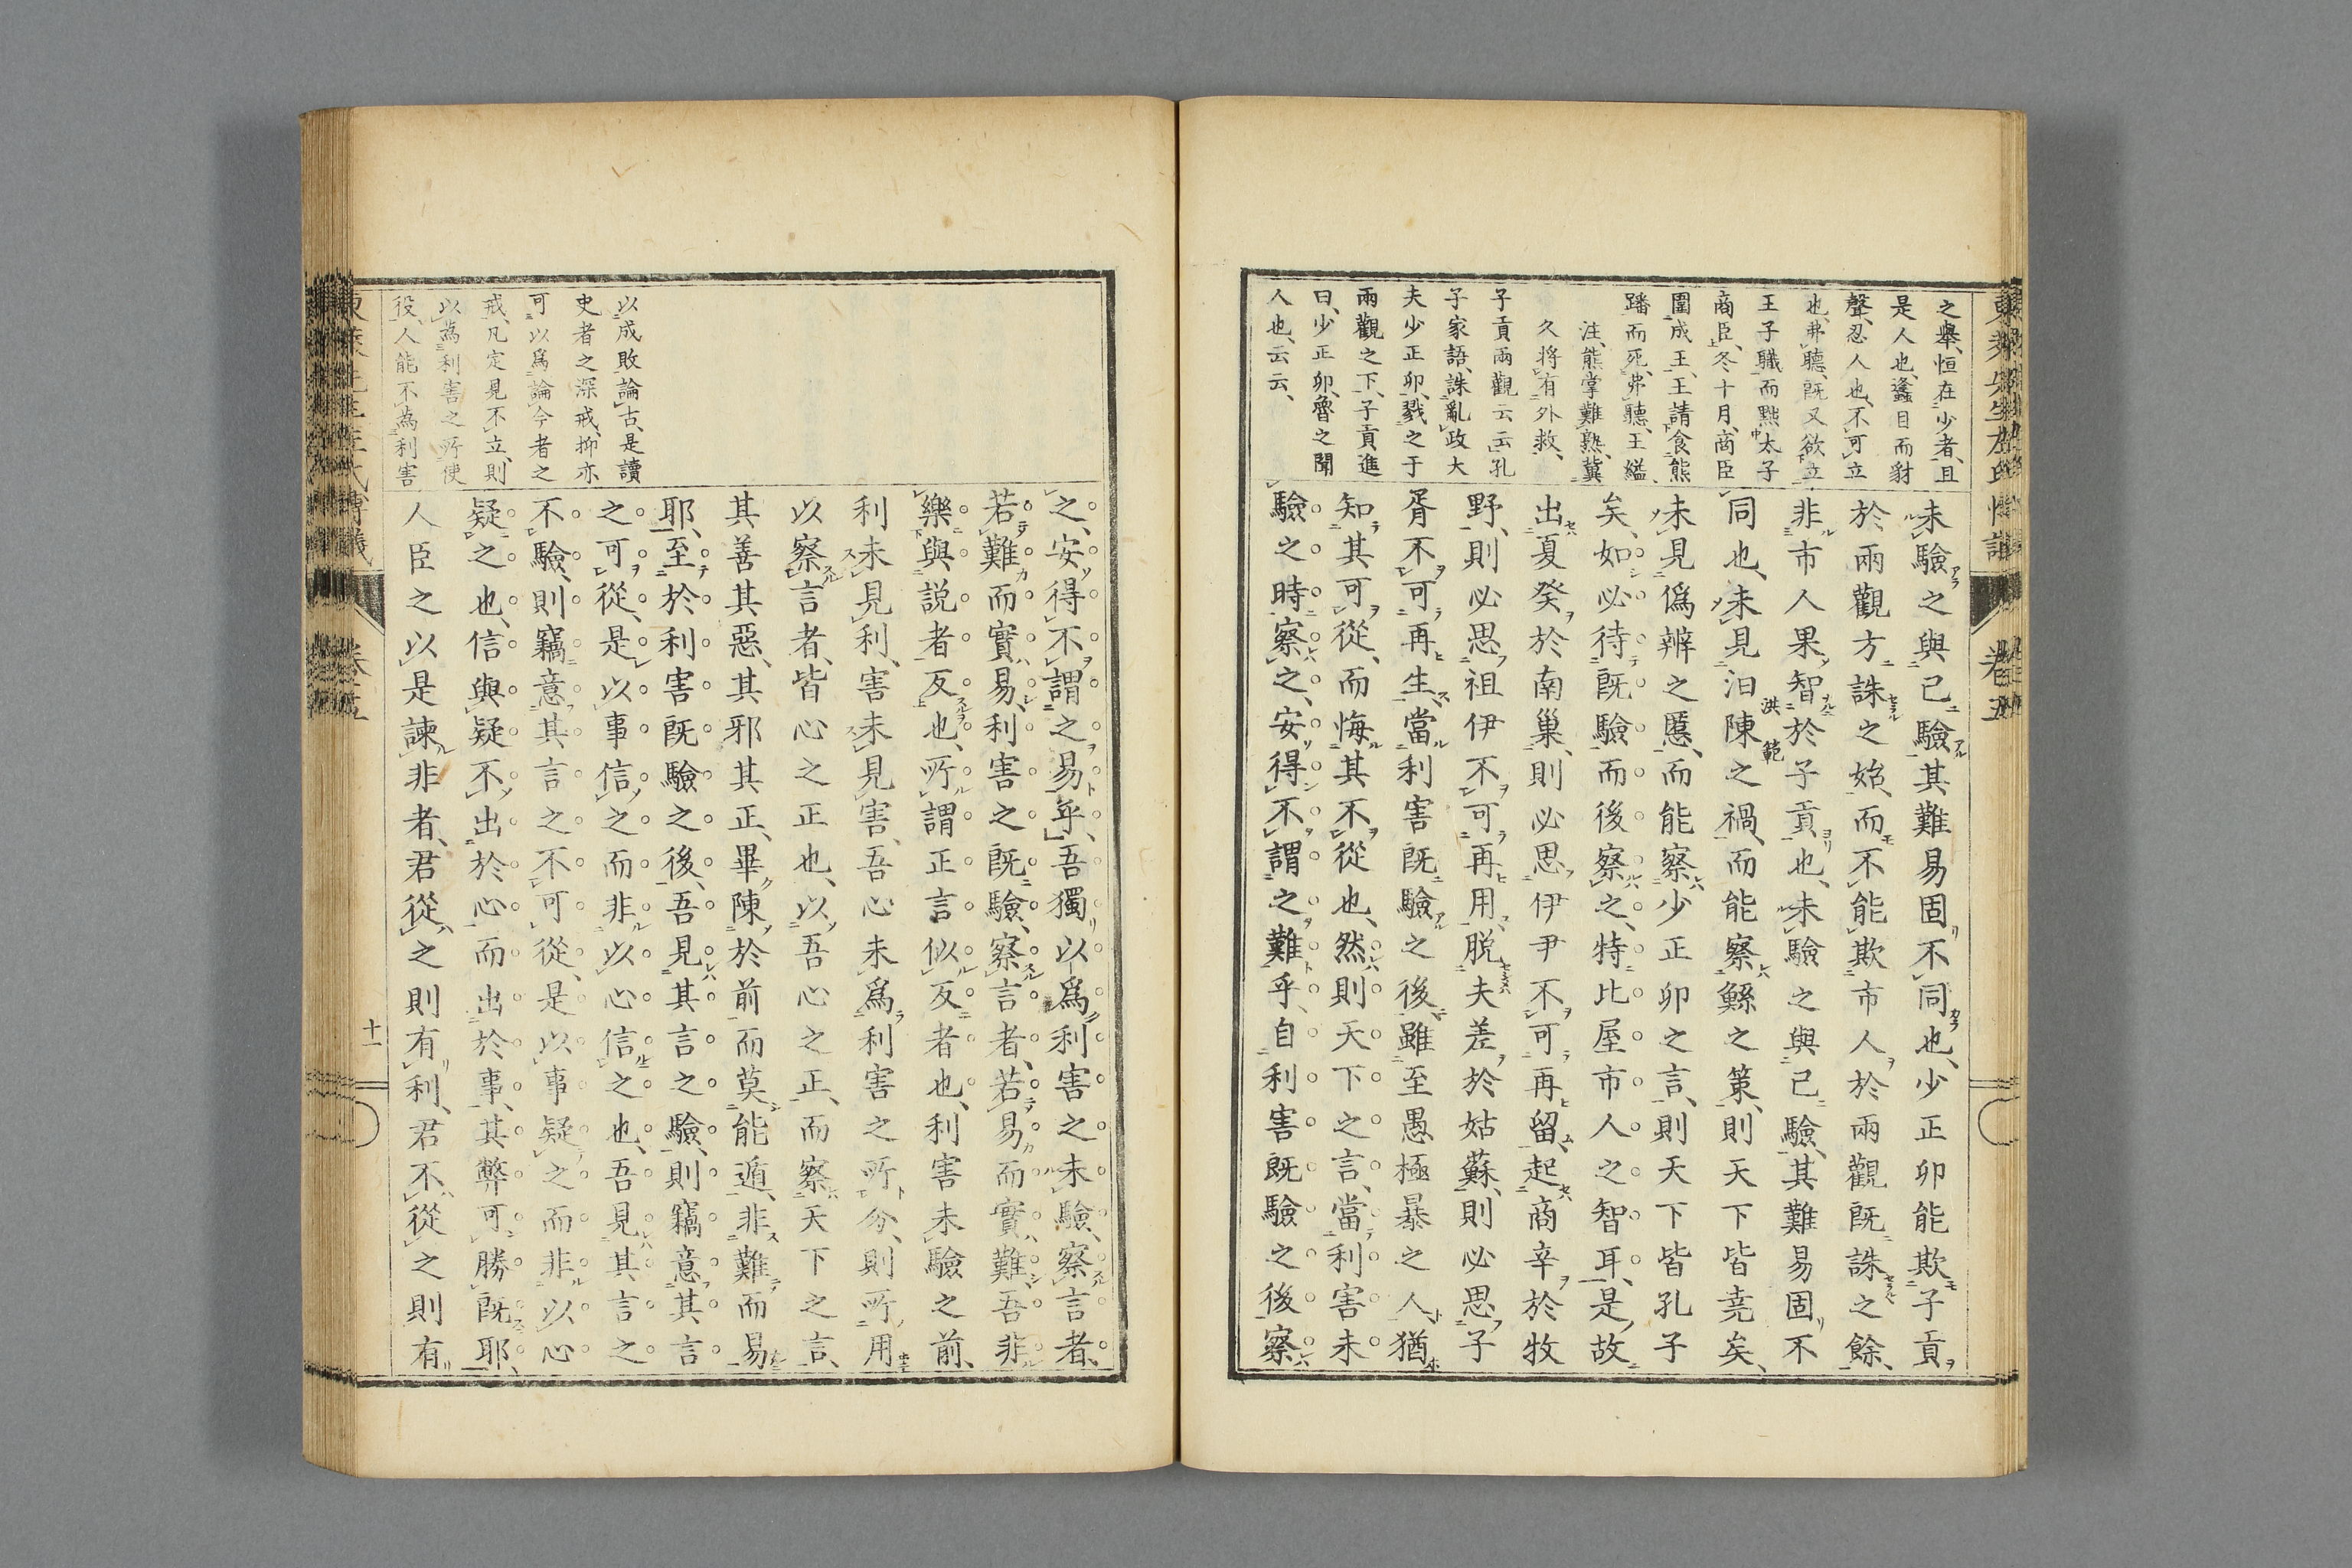 之擧、恒在少者、且
是人也、蠭目而豺
聲、忍人也、不可立
也、弗聽、旣又欲立
王子職而黜太子
商臣、冬十月、商臣
圍成王、王請食熊
蹯而死、弗聽、王縊、
注、熊掌難熟、冀
久將有外救、
子貢兩觀云云、孔
子家語、誅亂政大
夫少正卯、戮之于
兩觀之下、子貢進
曰、少正卯、魯之聞
人也、云云、
未驗之與已驗其難易固不同也、少正卯能欺子貢
於兩觀方誅之始、而不能欺市人於兩觀旣誅之餘、
非市人果智於子貢也、未驗之與已驗、其難易固不
同也、未見汩陳之禍、而能察鯀之策、則天下皆堯矣、
未見僞辨之慝、而能察少正卯之言、則天下皆孔子
矣、如必待旣驗而後察之、特比屋市人之智耳、是故
出夏癸於南巢、則必思伊尹不可再留、起商辛於牧
野、則必思祖伊不可再用、脱夫差於姑蘇、則必思子
胥不可再生、當利害旣驗之後、雖至愚極暴之人、猶
知其可從、而悔其不從也、然則天下之言、當利害未
驗之時察之、安得不謂之難乎、自利害旣驗之後察
之、安得不謂之易乎、吾獨以爲利害之未驗、察言者、
若難而實易、利害之旣驗、察言者、若易而實難、吾非
樂與説者反也、所謂正言似反者也、利害未驗之前、
利未見利、害未見害、吾心未爲利害之所分、則所用
以察言者、皆心之正也、以吾心之正、而察天下之言、
其善其惡、其邪其正、畢陳於前而莫能遁、非難而易
耶、至於利害旣驗之後、吾見其言之驗、則竊意其言
之可從、是以事信之而非以心信之也、吾見其言之
不驗、則竊意其言之不可從、是以事疑之而非以心
疑之也、信與疑不出於心而出於事、其弊可勝旣耶、
人臣之以是諫非者、君從之則有利、君不從之則有
以成敗論古、是讀
史者之深戒、抑亦
可以爲論今者之
戒、凡定見不立、則
以為利害之所使
役、人能不為利害
十一